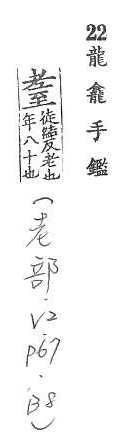 22龍龕手鑑
耋 徒結反老也
年八十也
(老部.V2
P67.B8)